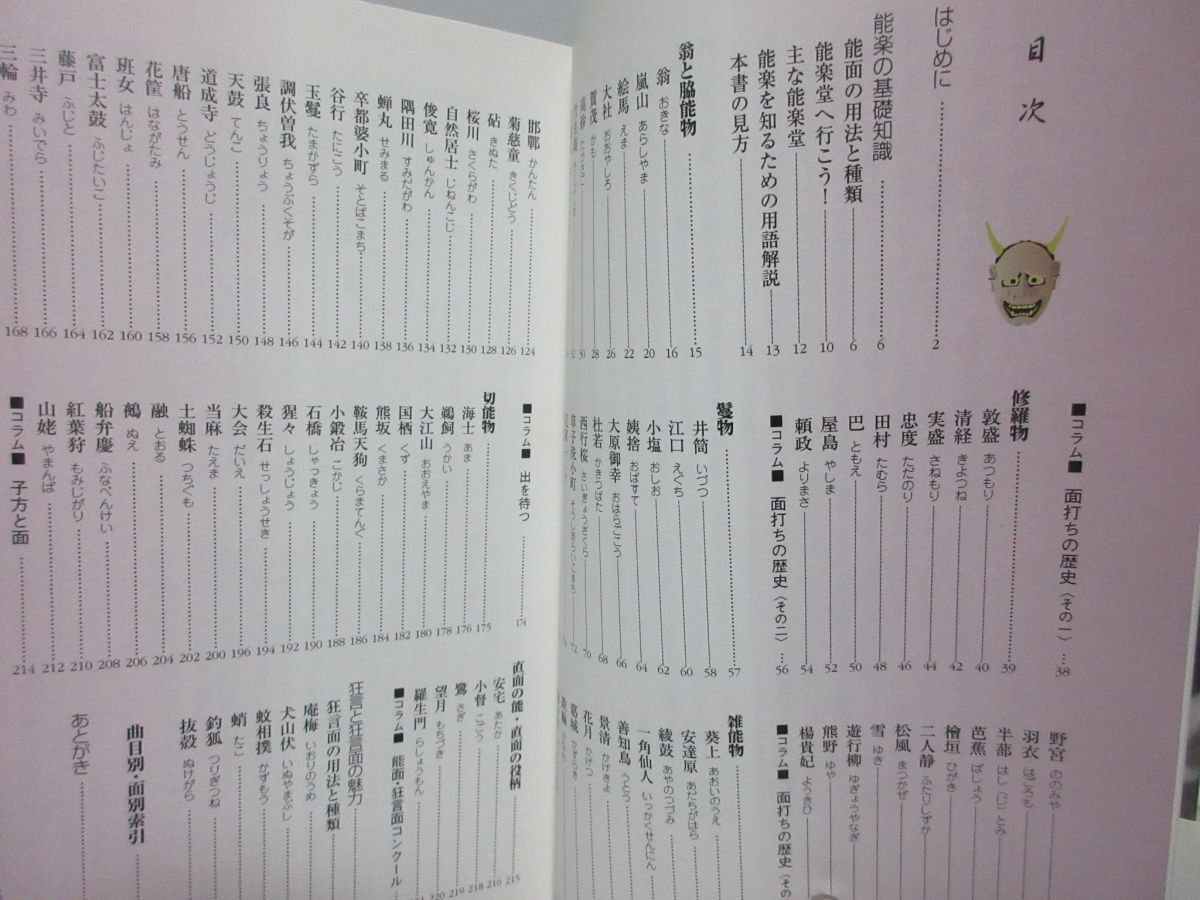 目次
はじめに 2
能楽の基礎知識 6
能面の用法と種類 6
能楽堂へ行こう! 10
主な能楽堂 12
能楽を知るための用語解説 13
本書の見方 14
翁と脇能物 15
翁 おきな 16
嵐山 あらしやま 20
絵馬 えま 22
大社 おおやしろ 26
賀茂 かも 28
高砂 30
■コラム■ 面打ちの歴史〈その一〉 38
修羅物 39
敦盛 あつもり 40
清経 きよつね 42
実盛 さねもり 44
忠度 ただのり 46
田村 たむら 48
巴 ともえ 50
屋島 やしま 52
頼政 よりまさ 54
■コラム■ 面打ちの歴史〈その二〉 56
鬘物 57
井筒 いづつ 58
江口 えぐち 60
小塩 おしお 62
姨捨 おばすて 64
大原御幸 おはらごこう 66
杜若 かきつばた 68
西行桜 さいぎょうざくら 70
草子洗小町 そうしあらいこまち 72
野宮 ののみや
羽衣 はごろも
半蔀 はし(じ)とみ
芭蕉 ばしょう
檜垣 ひがき
二人静 ふたりしずか
松風 まつかぜ
雪 ゆき
遊行柳 ゆぎょうやなぎ
熊野 ゆや
楊貴妃 ようきひ
■コラム■ 面打ちの歴史〈その
雑能物
葵上 あおいのうえ
安達原 あだちがはら
綾鼓 あやのつづみ
一角仙人 いっかくせんにん
善知鳥 うとう
景清 かげきよ
花月 かげつ
葛城 かずらき
邯鄲 かんたん 124
菊慈童 きくじどう 126
砧 きぬた 128
桜川 さくらがわ 130
自然居士 じねんこじ 132
俊寛 しゅんかん 134
隅田川 すみだがわ 136
蝉丸 せみまる 138
卒都婆小町 そとばこまち 140
谷行 たにこう 142
玉鬘 たまかずら 144
調伏曽我 ちょうぶくそが 146
張良 ちょうりょう 148
天鼓 てんこ 150
道成寺 どうじょうじ 152
唐船 とうせん 156
花筐 はながたみ 158
班女 はんじょ 160
富士太鼓 ふじたいこ 162
藤戸 ふじと 164
三井寺 みいでら 166
三輪 みわ 168
■コラム■ 出を待つ 174
切能物 175
海士 あま 176
鵜飼 うかい 178
大江山 おおえやま 180
国栖 くず 182
熊坂 くまさか 184
鞍馬天狗 くらまてんぐ 186
小鍛冶 こかじ 188
石橋 しゃっきょう 190
猩々 しょうじょう 192
殺生石 せっしょうせき 194
大会 だいえ 196
当麻 たえま 200
土蜘蛛 つちぐも 202
融 とおる 204
鵺 ぬえ 206
船弁慶 ふなべんけい 208
紅葉狩 もみじがり 210
山姥 やまんば 212
■コラム■ 子方と面 214
直面の能・直面の役柄 215
安宅 あたか 216
小督 こごう 218
鷺 さぎ 219
望月 もちづき 220
羅生門 らしょうもん
■コラム■ 能面・狂言面コンクール
狂言と狂言面の魅力
狂言面の用法と種類
庵梅 いおりのうめ
犬山伏 いぬやまぶし
蚊相撲 かずもう
蛸 たこ
釣狐 つりぎつね
抜殻 ぬけがら
曲目別・面別索引
あとがき